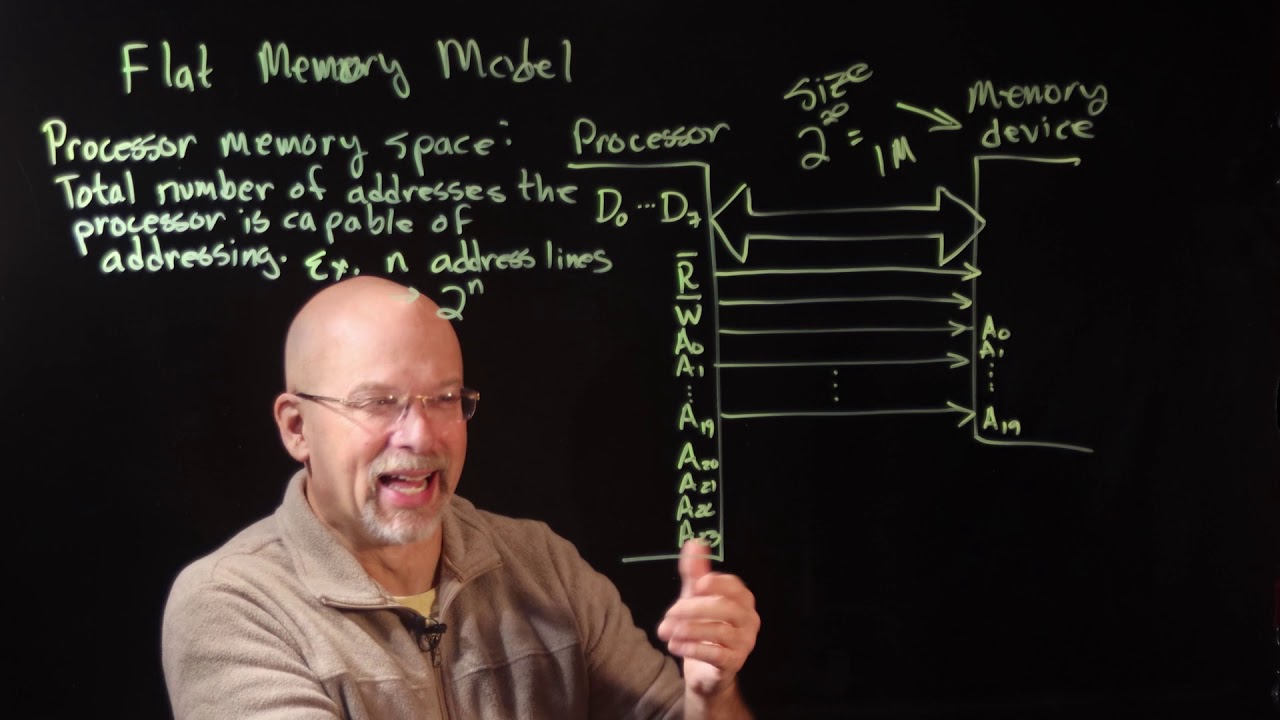 Flat Memory Model
Processor memory space:
Total number of addresses the
processor is capable of
addressing. Ex. n address lines
→ 2ⁿ
Processor
D₀ ... D₇
R̅
W̅
A₀
A₁
⋮
A₁₉
A₂₀
A₂₁
A₂₂
A₂₃
size
2²⁰ = 1M
Memory
device
A₀
A₁
⋮
A₁₉